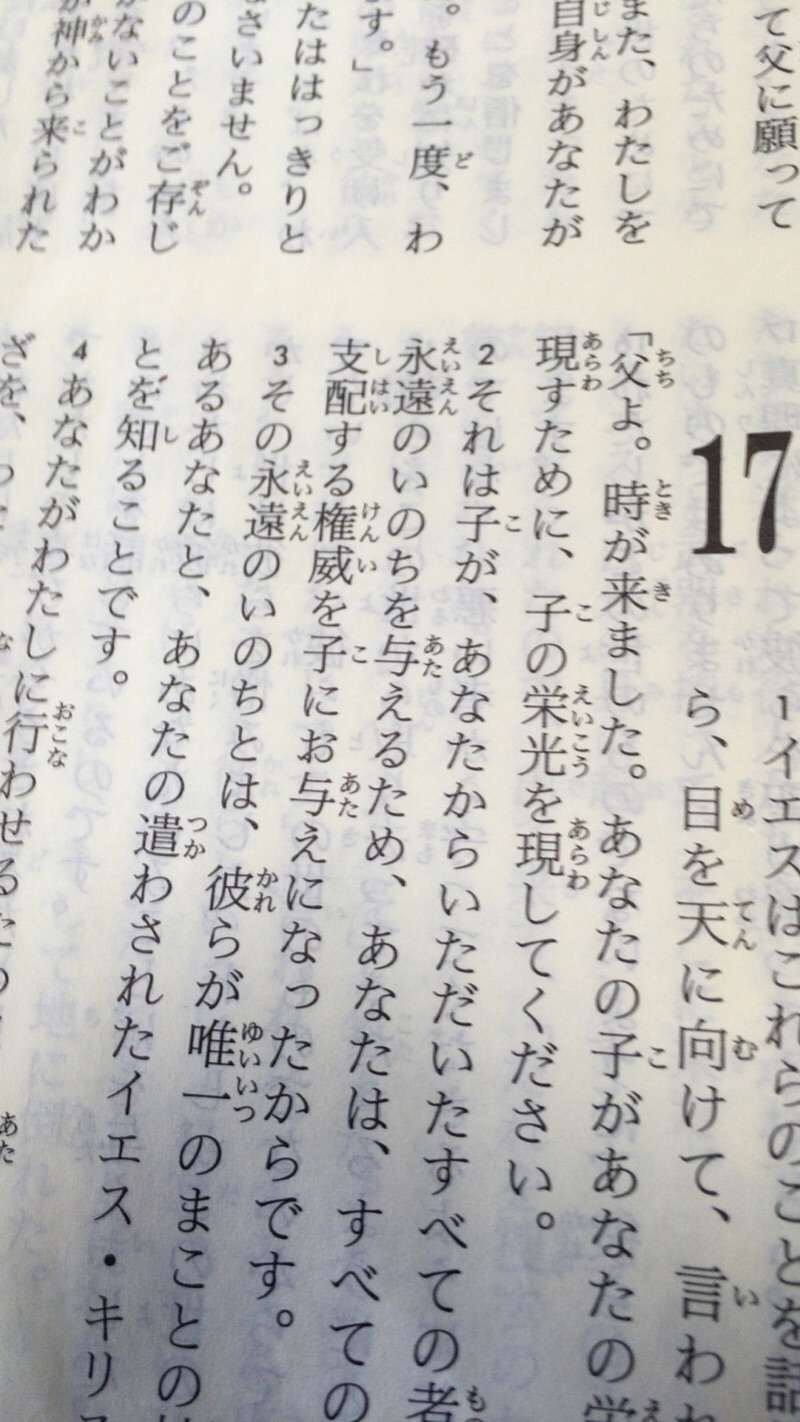 て父に願って
また、わたしを
自身があなたが
。もう一度、わ
す。」
たははっきりと
さいません。
のことをご存じ
がないことがわか
神から来られた
17
1 イエスはこれらのことを話
ら、目を天に向けて、言わ
「父よ。時が来ました。あなたの子があなたの栄
現すために、子の栄光を現してください。
2 それは子が、あなたからいただいたすべての者
永遠のいのちを与えるため、あなたは、すべての
支配する権威を子にお与えになったからです。
3 その永遠のいのちとは、彼らが唯一のまことの
あるあなたと、あなたの遣わされたイエス・キリス
とを知ることです。
4 あなたがわたしに行わせるた
ざを、